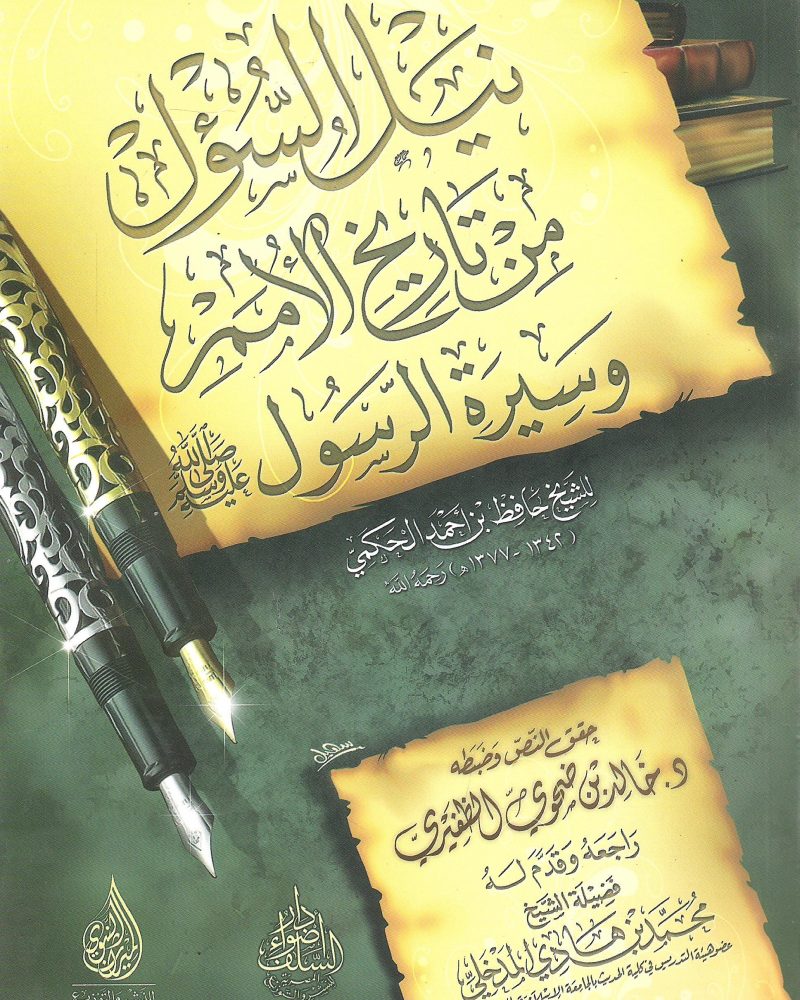 نَيْلُ السُّؤْل
مِنْ تَارِيخِ الأُمَمِ
وَسِيرَةِ الرَّسُولِ صلى الله عليه وسلم
للشيخ حافظ بن أحمد الحكمي
(١٣٤٢ - ١٣٧٧ هـ) رحمه الله
حقق النص وضبطه
د. خالد بن ضحوي الظفيري
راجعه وقدم له
فضيلة الشيخ
محمد بن هادي المدخلي
عضو هيئة التدريس في كلية الحديث بالجامعة الإسلامية
دار
أضواء
السلف
المصرية
الميراث النبوي
للنشر والتوزيع